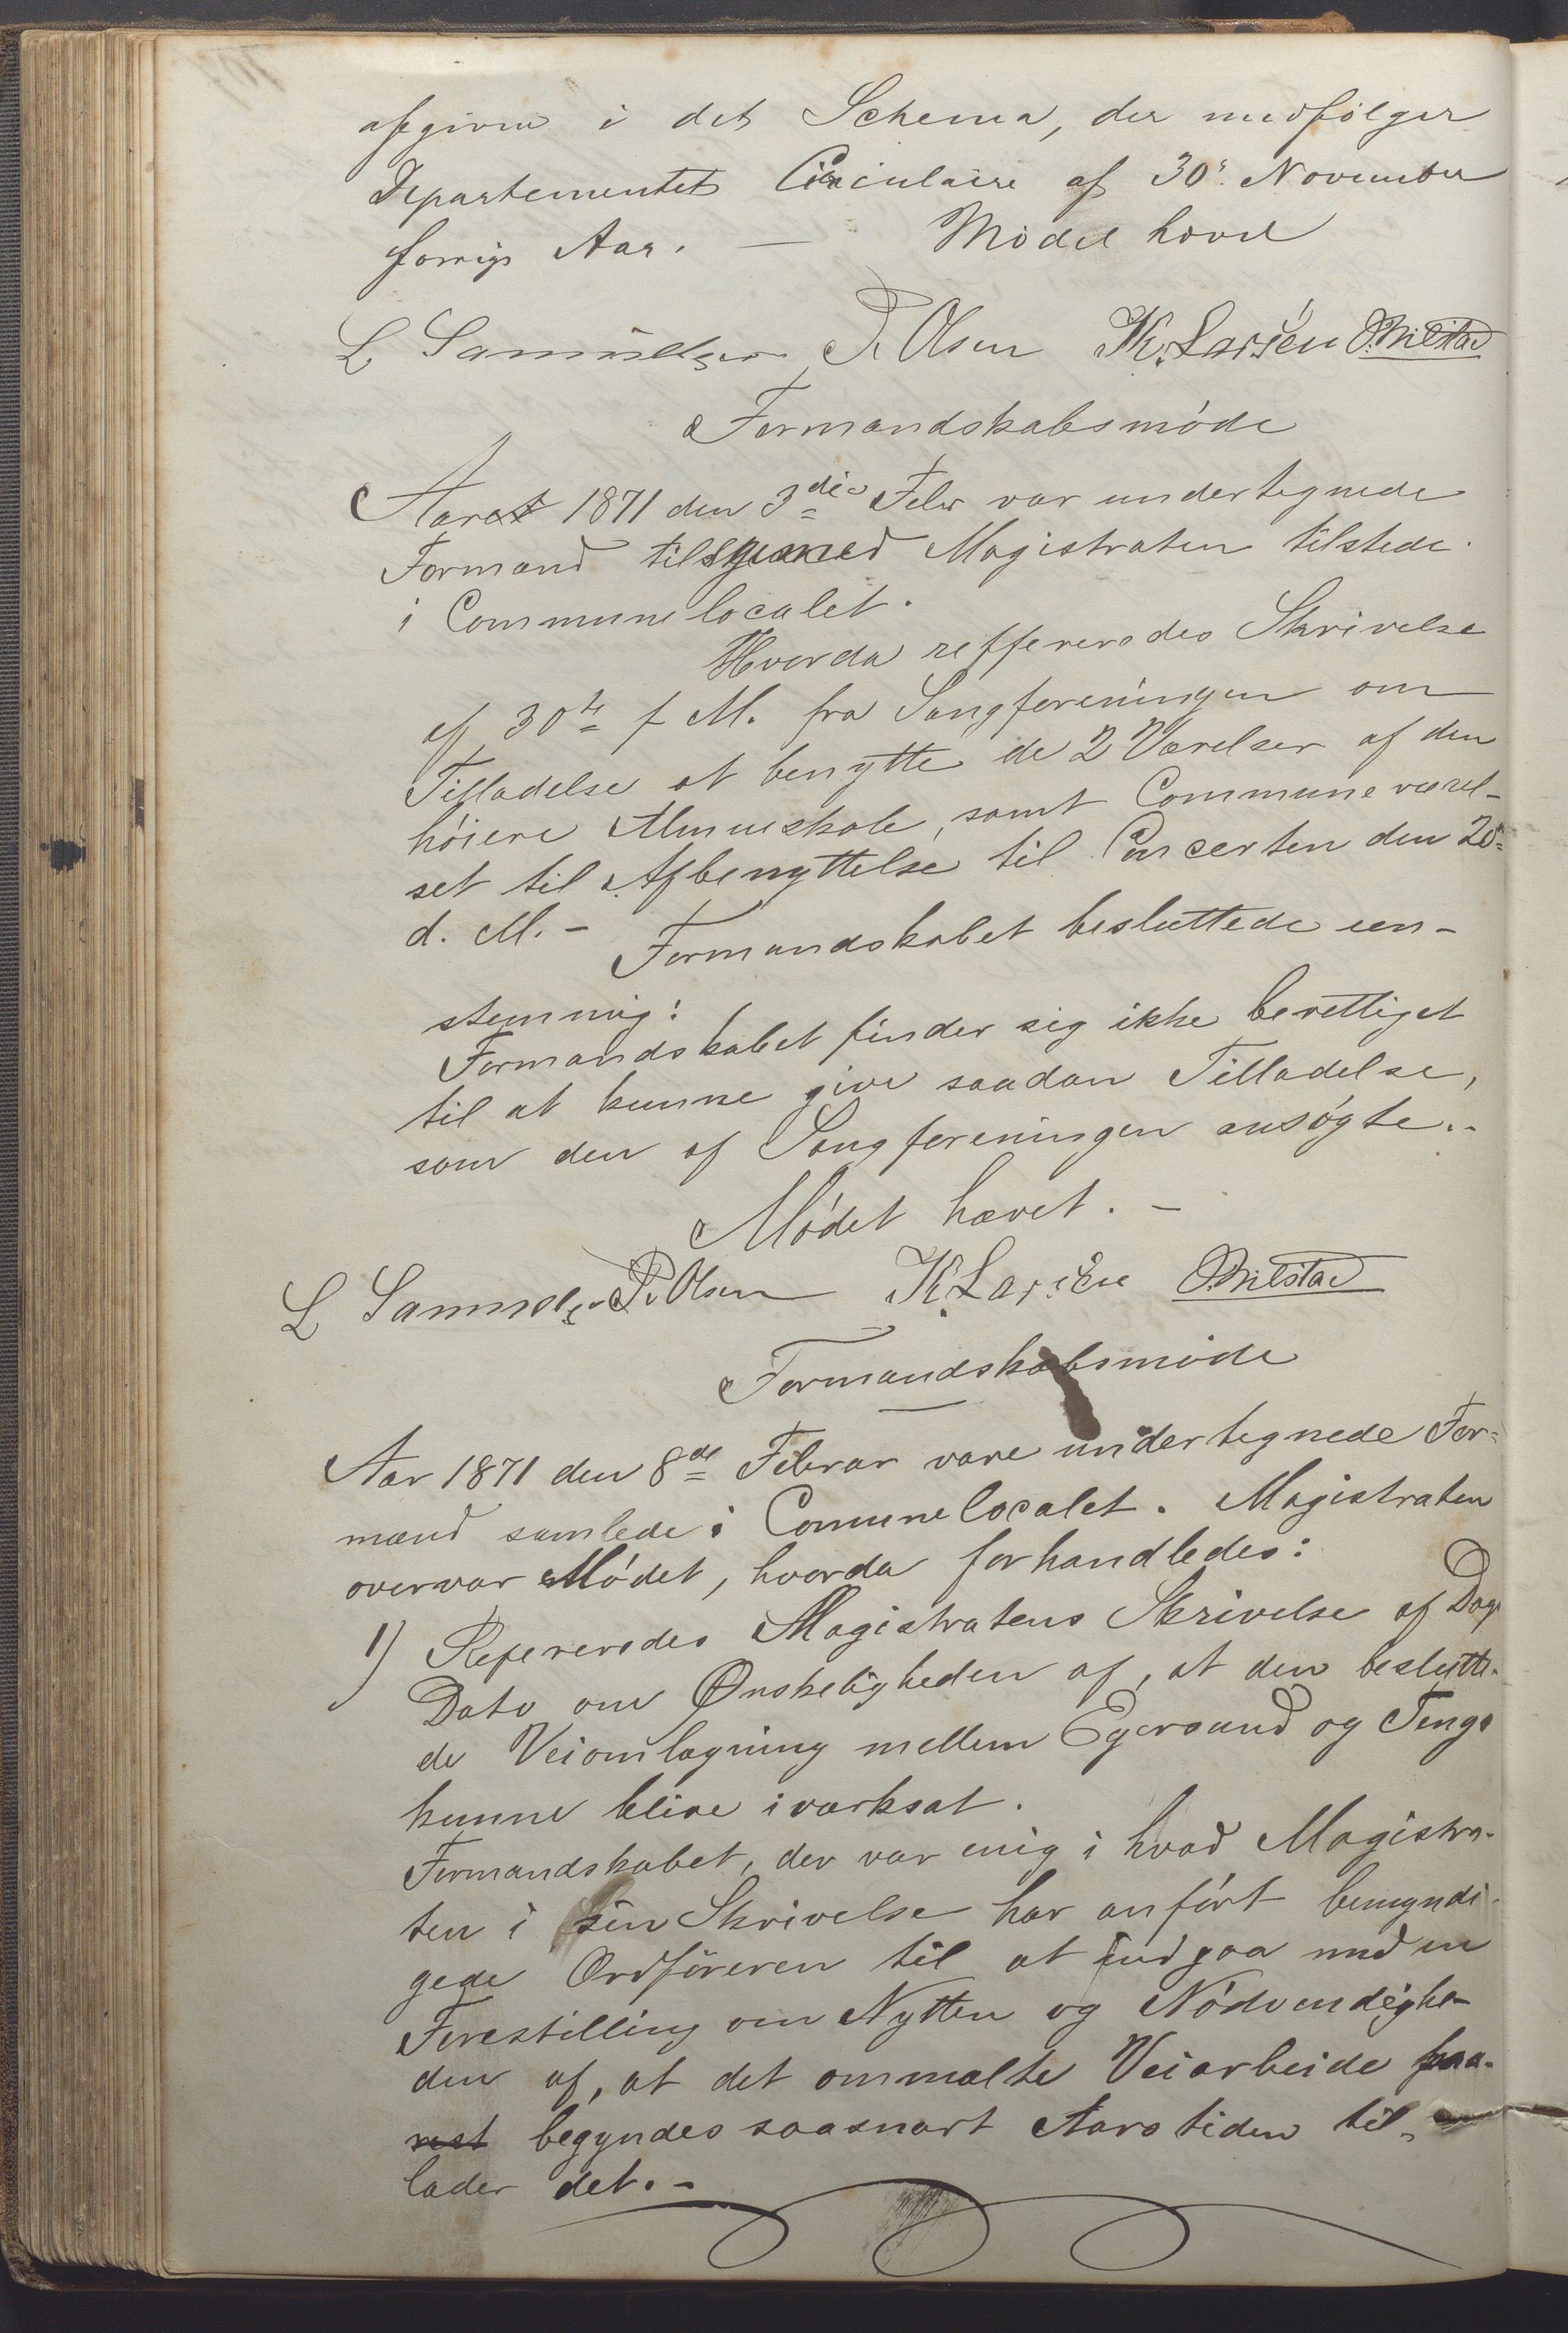 afgivne i det Schema, der medfølger
Departementets Circulaire af 30' November
forrige Aar. — Mødet hævet
L Samuelsen P. Olsen K. Larsen O Milstad
Formandskabsmøde
Aaret 1871 den 3die Febr var undertegnede
Formænd tilligemed Magistraten tilstede
i Communelocalet.
Hvorda reffereredes Skrivelse
af 30te f M. fra Sangforeningen om
Tilladelse at benytte de 2 Værelser af den
høiere Almueskole, samt Communeværel-
set til Afbenyttelse til Concerten den 20=
d. M. -
Formandskabet besluttede een-
stemmig:
Formandskabet finder sig ikke berettiget
til at kunne give saadan Tilladelse,
som den af Sangforeningen ansøgte.-
Mødet hævet. -
L Samuelsen P. Olsen K. Larsen O Milstad
Formandskabsmøde
Aar 1871 den 8de Februar vare undertegnede For=
mænd samlede i Comunelocalet. Magistraten
overvar Mødet, hvorda forhandledes:
1) Refereredes Magistratens Skrivelse af Dags
Dato om Ønskeligheden af, at den beslutte-
de Veiomlægning mellem Egersund og Tengs
kunne blive iværksat.
Formandskabet, der var enig i hvad Magistra-
ten i sin Skrivelse har anført bemyndi-
gede Ordføreren til at indgaa med en
Forestilling om Nytten og Nødvendighe-
den af, at det ommælte Veiarbeide paa-
begyndes saasnart Aarstiden til-
lader det.-